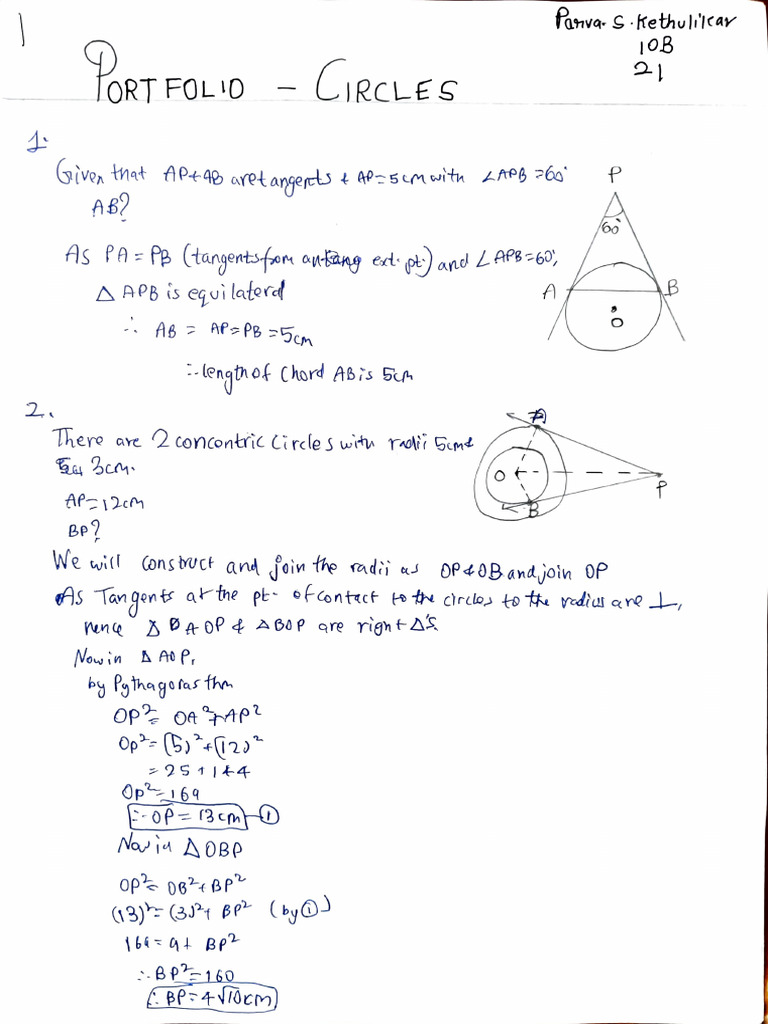 1
Parva. S. Kethulikar
10B
21
PORTFOLIO - CIRCLES
1.
Given that AP + AB are tangents + AP = 5cm with ∠APB = 60°
AB?
As PA = PB (tangents from an ext. pt.) and ∠APB = 60°,
△ APB is equilateral
∴ AB = AP = PB = 5cm
∴ length of Chord AB is 5cm
P
60°
A
B
O
2.
There are 2 concontric circles with radii 5cm &
3cm.
AP = 12cm
BP?
A
O
P
B
We will construct and join the radii as OP & OB and join OP
As Tangents at the pt. of contact to the circles to the radius are ⊥,
hence △ AOP & △ BOP are right △'s.
Now in △ AOP,
by Pythagoras thm
OP² = OA² + AP²
OP² = (5)² + (12)²
= 25 + 144
OP² = 169
∴ OP = 13cm - ①
Now in △ OBP
OP² = OB² + BP²
(13)² = (3)² + BP² (by ①)
169 = 9 + BP²
∴ BP² = 160
∴ BP = 4√10cm